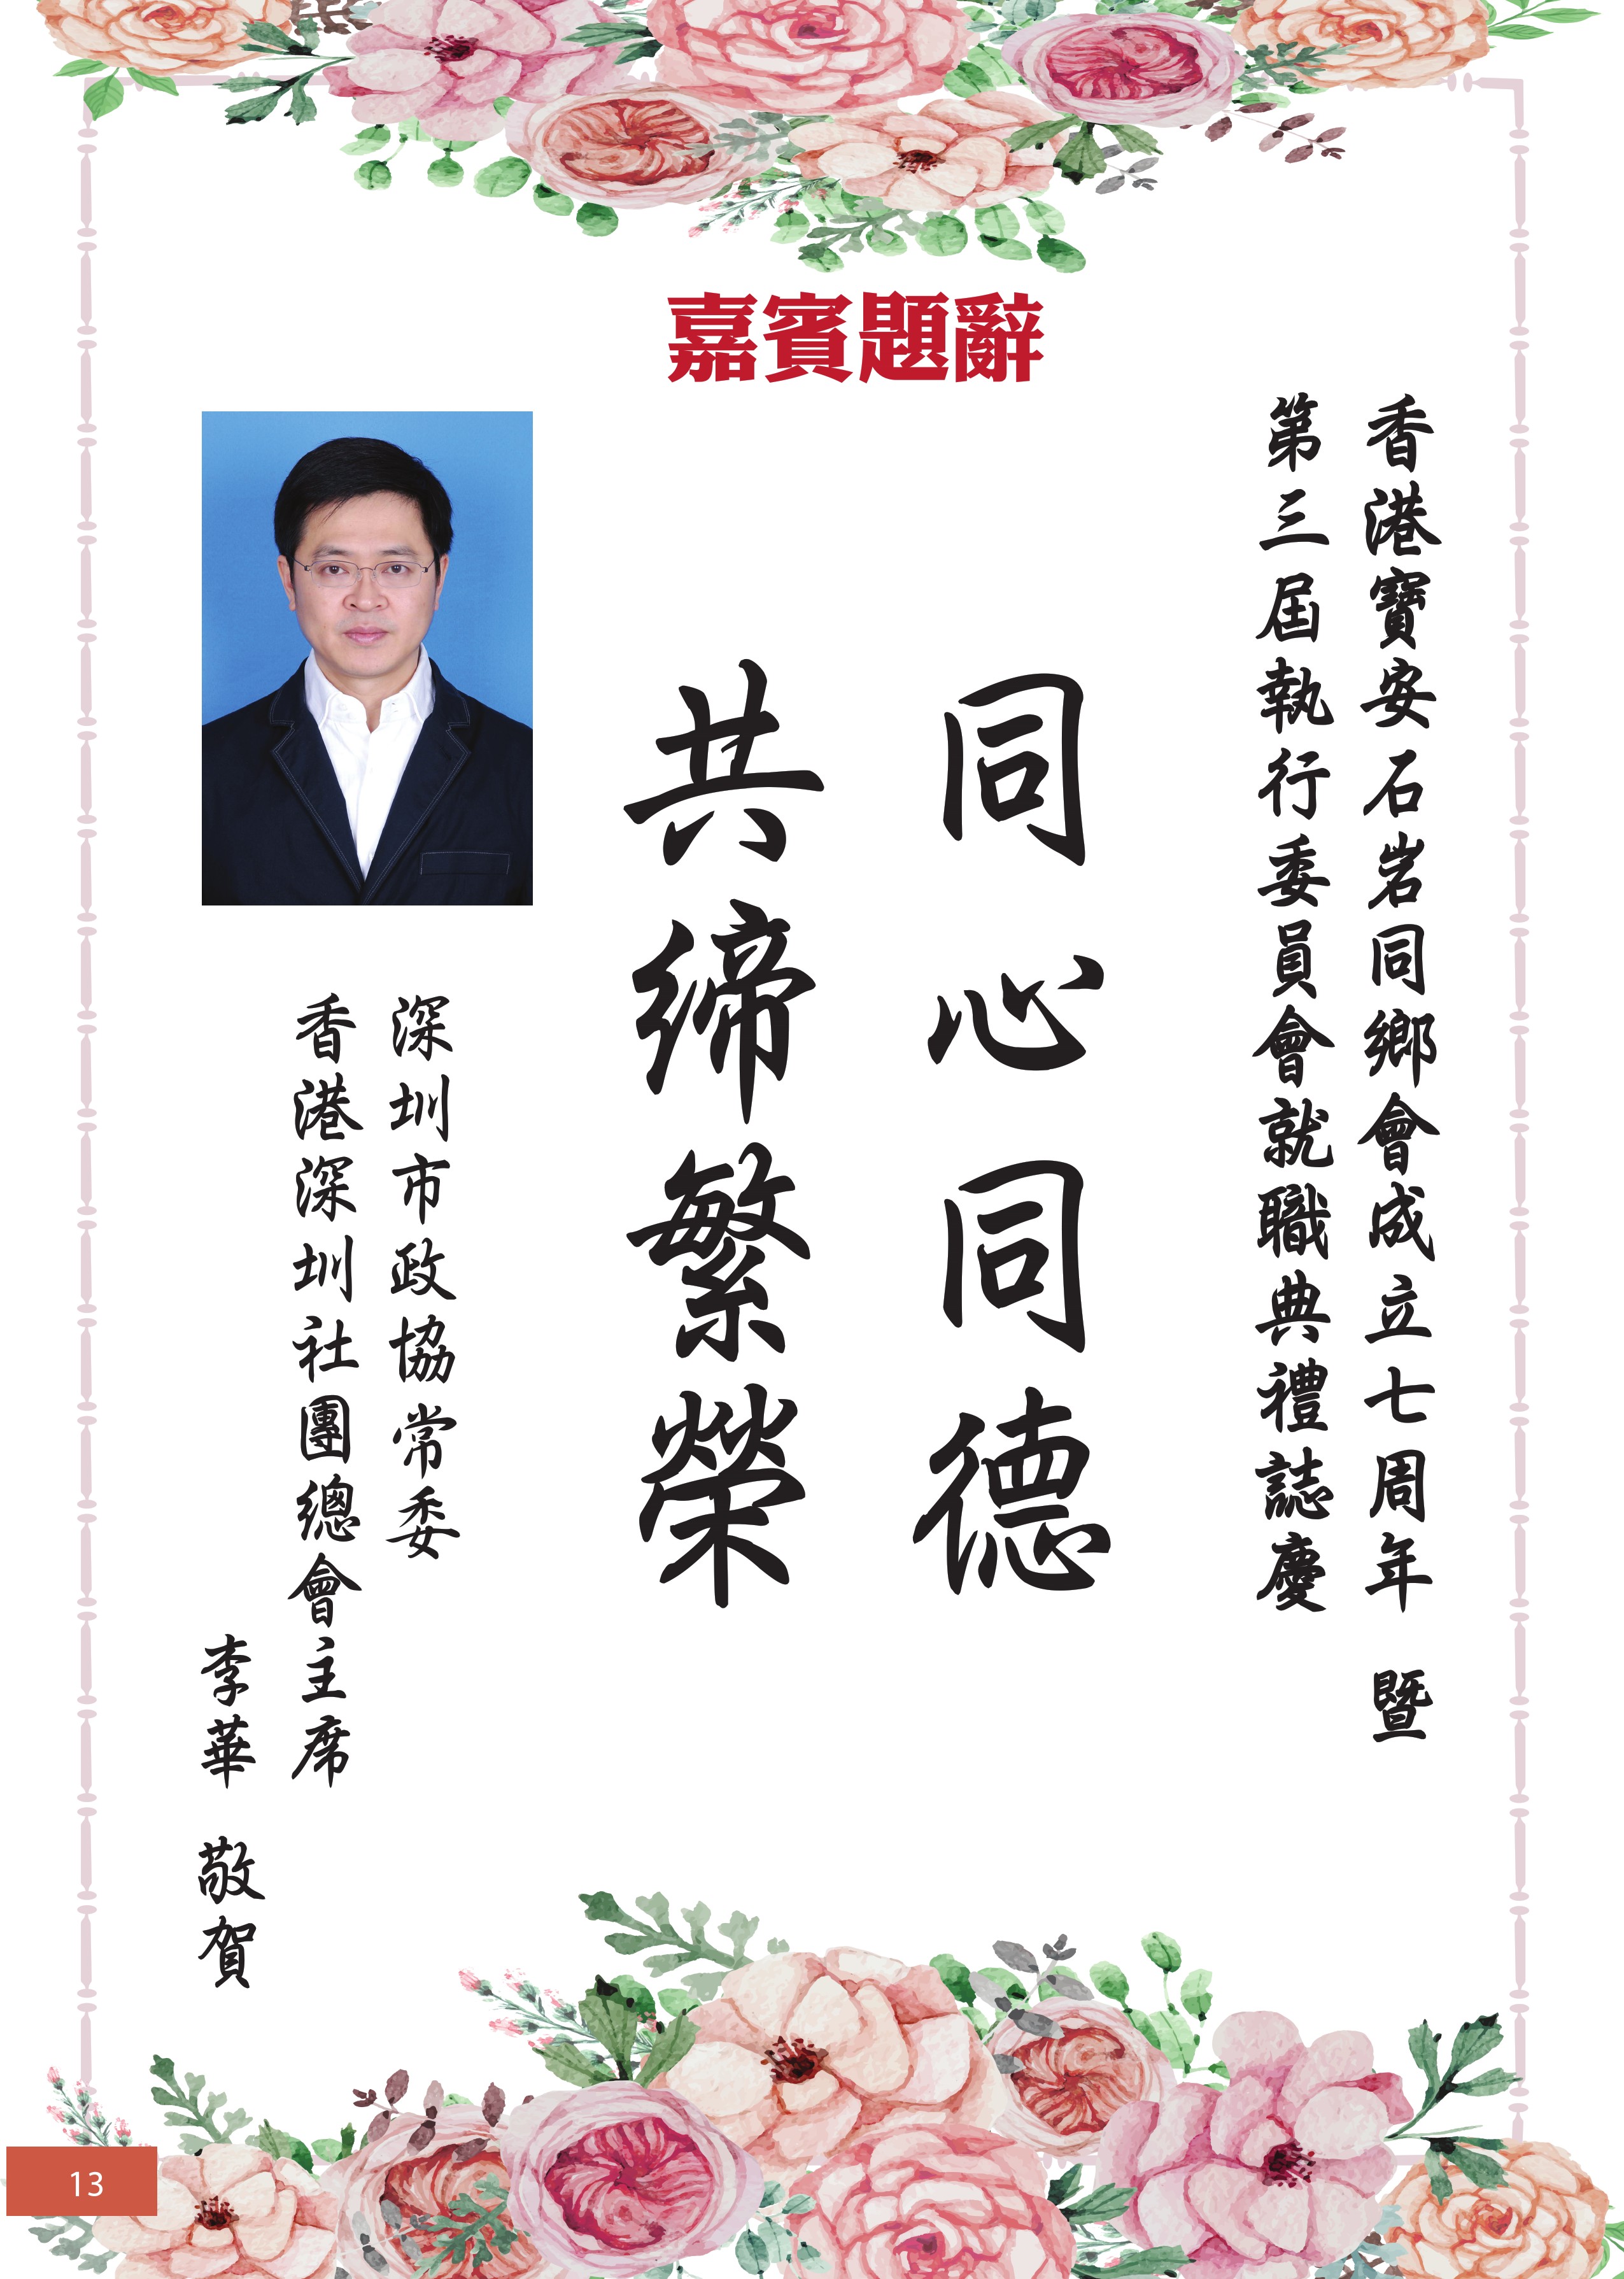 嘉賓題辭
香港寶安石岩同鄉會成立七周年 暨
第三屆執行委員會就職典禮誌慶
同心同德
共締繁榮
深圳市政協常委
香港深圳社團總會主席
李華 敬賀
13